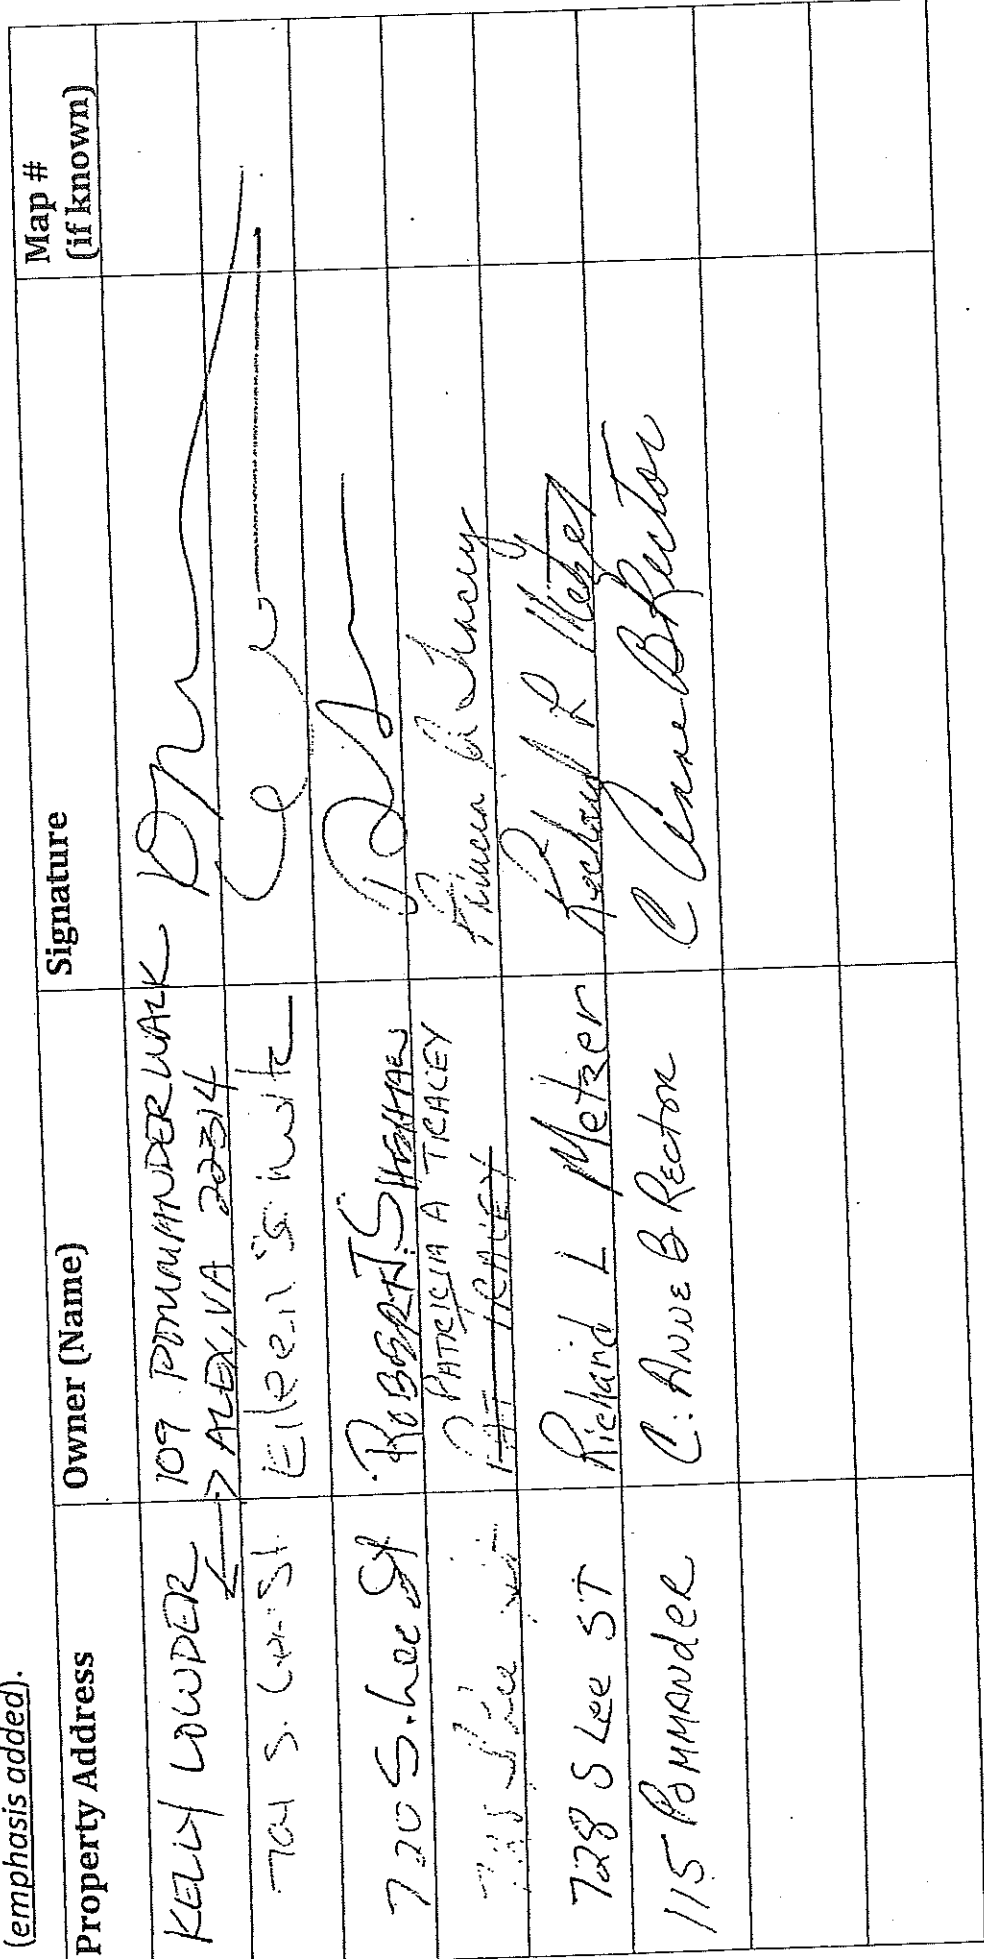 (emphasis added).
Property Address Owner (Name) Signature Map # (if known)
KELLY LOWDER 109 POMMANDER WALK
ALEX, VA 22314
S. St. Eileen
720 S. Lee St ROBERT J.
PATRICIA A TRACEY Patricia A Tracey
PAT TRACEY
728 S Lee ST Richard L Metzer Richard Metzer
115 POMMANDER C. ANNE B RECTOR C Anne B Rector